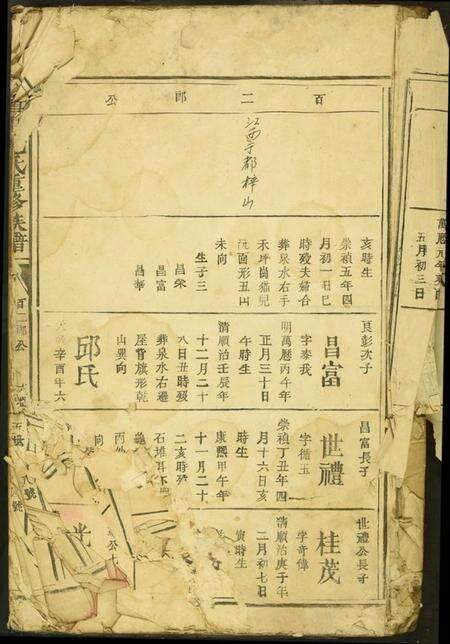 萬曆元年癸酉
五月初三日
百二郎公
江西于都梓山
亥時生
崇禎五年四
月初一日巳
時歿夫婦合
葬泉水右手
禾坪崗猫兒
洗面形丑山
未向
生子三
昌榮
昌富
昌華
良彭次子
昌富
字泰我
明萬曆丙午年
正月三十日
午時生
清順治壬辰年
十二月二十
八日丑時歿
葬泉水右邊
屋背旗形乾
山巽向
邱氏
辛酉年六
昌富長子
世禮
字循玉
崇禎丁丑年四
月十六日亥
時生
康熙甲午年
十一月二十
二亥時歿
石堆
向
世禮公長子
桂茂
字奇偉
清順治庚子年
二月初七日
寅時生
氏重修族譜
百二郎公